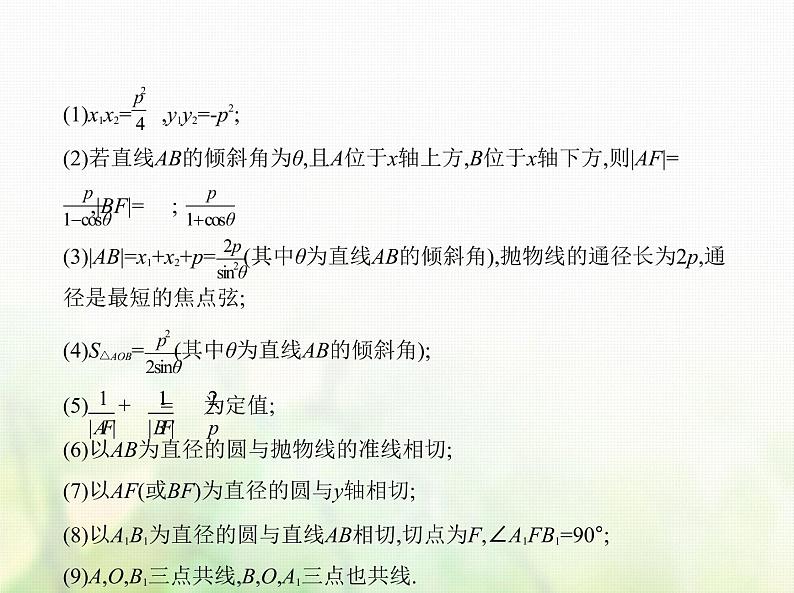 (1)x₁x₂=p²/4 ,y₁y₂=-p²;
(2)若直线AB的倾斜角为θ,且A位于x轴上方,B位于x轴下方,则|AF|=
p/(1-cosθ) ,|BF|= p/(1+cosθ) ;
(3)|AB|=x₁+x₂+p=2p/sin²θ(其中θ为直线AB的倾斜角),抛物线的通径长为2p,通
径是最短的焦点弦;
(4)S△AOB=p²/(2sinθ)(其中θ为直线AB的倾斜角);
(5)1/|AF| + 1/|BF| = 2/p 为定值;
(6)以AB为直径的圆与抛物线的准线相切;
(7)以AF(或BF)为直径的圆与y轴相切;
(8)以A₁B₁为直径的圆与直线AB相切,切点为F,∠A₁FB₁=90°;
(9)A,O,B₁三点共线,B,O,A₁三点也共线.